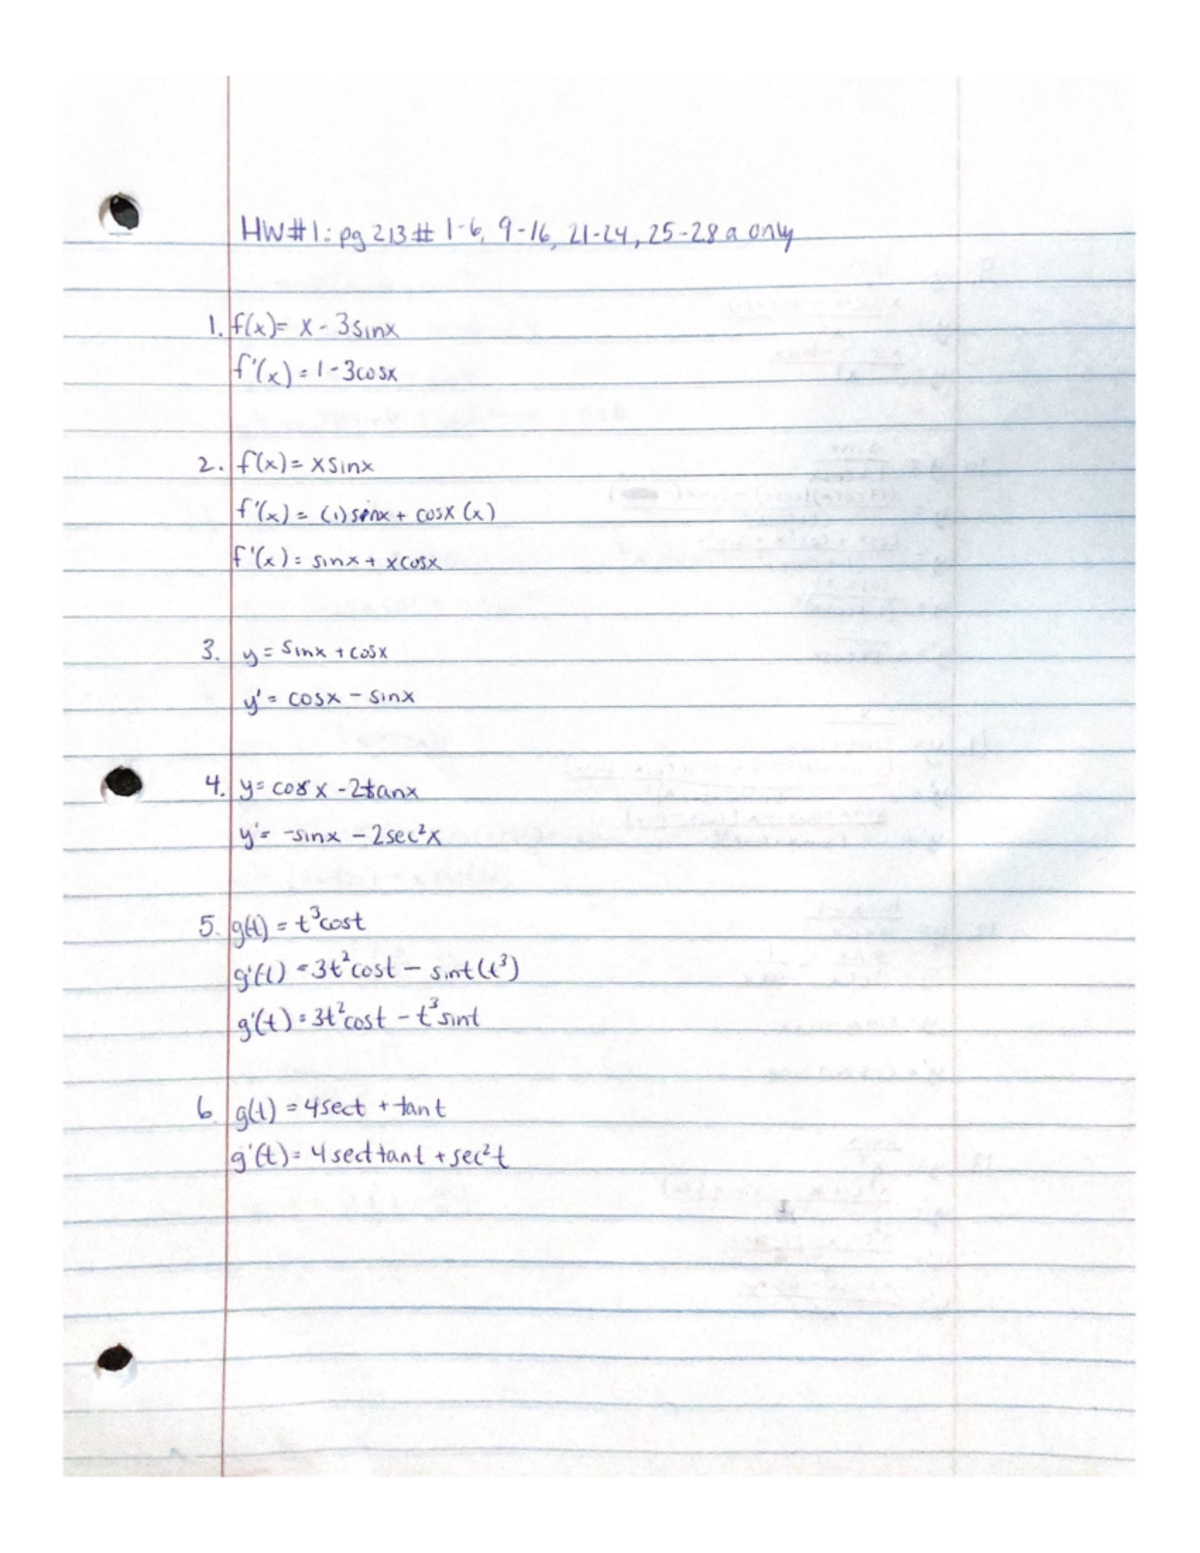 HW#1: pg 213# 1-6, 9-16, 21-24, 25-28 a only
1. f(x)= x - 3sinx
f'(x) = 1-3cosx
2. f(x)= xsinx
f'(x) = (1)sinx + cosx (x)
f'(x) = sinx + xcosx
3. y = sinx + cosx
y' = cosx - sinx
4. y= cosx - 2tanx
y'= -sinx - 2sec²x
5. g(t) = t³cost
g'(t) = 3t²cost - sint(t³)
g'(t) = 3t²cost - t³sint
6. g(t) = 4sect + tant
g'(t) = 4sect tant + sec²t